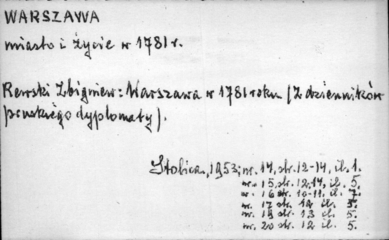 WARSZAWA
miasto i życie w 1781 r.
Rewski Zbigniew: Warszawa w 1781 roku (Z dzienników
pruskiego dyplomaty).
Stolica, 1953, nr. 14, str. 12-14, il. 1.
nr. 15, str. 12,14, il. 5.
nr. 16 str. 10-11, il. 7.
nr. 17 str. 12 il. 3.
nr. 18 str. 13 il. 5.
nr. 20 str. 12 il. 5.